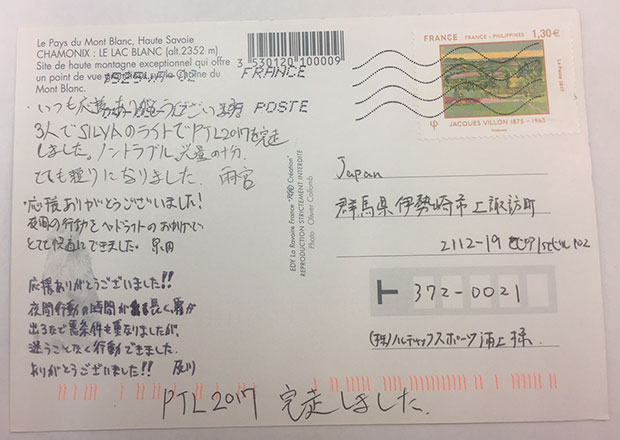 Le Pays du Mont Blanc, Haute Savoie
CHAMONIX : LE LAC BLANC (alt.2352 m)
Site de haute montagne exceptionnel qui offre
un point de vue sur la Chaîne du
Mont Blanc.
3 530120 100009
FRANCE
POSTE
FRANCE FRANCE - PHILIPPINES 1,30€
La Poste 2015
JACQUES VILLON 1875 - 1963
いつも応援ありがとうございます
3人でSILVAのライトでPTL2017を完走
しました。ノントラブル、光量の十分、
とても頼りになりました。雨宮
応援ありがとうございました!
夜間の行動をヘッドライトのおかげで
とても快適にできました。
応援ありがとうございました!!
夜間行動の時間が長く、霧が
出るなど悪条件も重なりましたが、
迷うことなく行動できました。
ありがとうございました!! 及川
PTL2017 完走しました。
EDY La Ravoire France "Création"
REPRODUCTION STRICTEMENT INTERDITE
Photo : Olivier Collomb
Japan
群馬県伊勢崎市上諏訪町
2112-19 102
〒 372-0021
(株)ノルディックスポーツ 浦上様